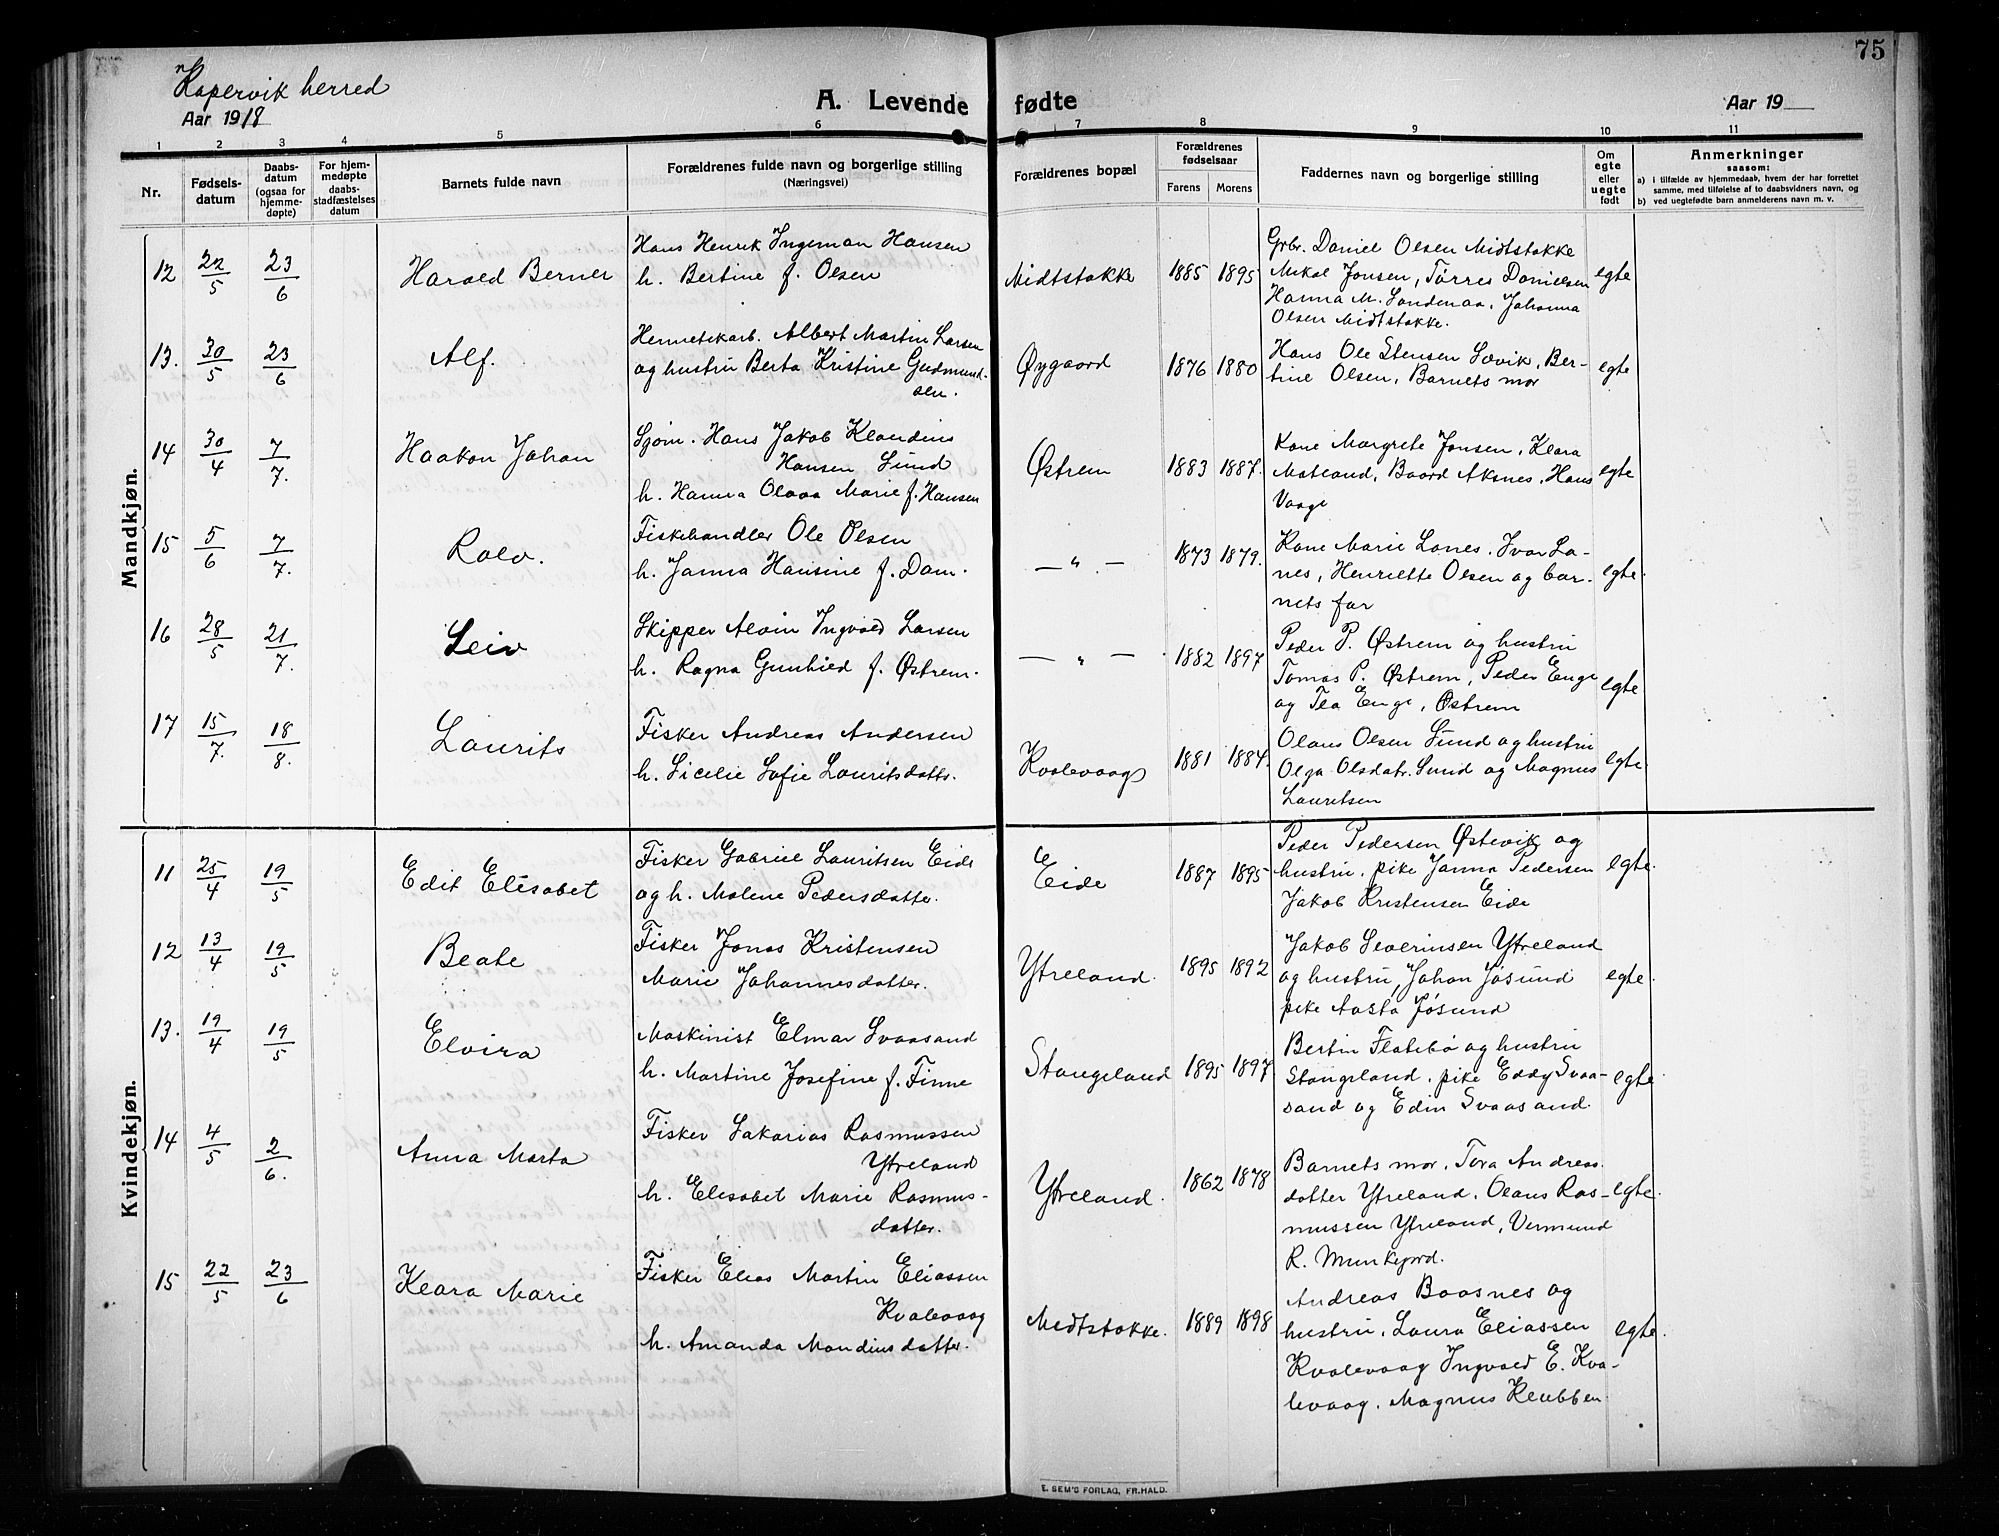 75
Kopervik herred
A. Levende fødte
Aar 1918
Aar 19
1 2 3 4 5 6 7 8 9 10 11
Nr.
Fødsels-
datum
Daabs-
datum
(ogsaa for
hjemme-
døpte)
For hjem-
medøpte
daabs-
stadfæstelses
datum
Barnets fulde navn
Forældrenes fulde navn og borgerlige stilling
(Næringsvei)
Forældrenes bopæl
Forældrenes
fødselsaar
Farens Morens
Faddernes navn og borgerlige stilling
Om
egte
eller
uegte
født
Anmerkninger
saasom:
a) i tilfælde av hjemmedaab, hvem der har forrettet
samme, med tilføielse af to daabsvidners navn, og
b) ved uegtefødte barn anmelderens navn m. v.
Mandkjøn.
12 22/5 23/6 Harald Berner
Hans Henrik Ingeman Hansen
h. Bertine f. Olsen
Midtstokke 1885 1895
Grbr. Daniel Olsen Midtstokke
Mikal Jonsen, Tørres Danielsen
Hanna M. Sandenaa, Johanna
Olsen Midtstokke.
egte
13. 30/5 23/6 Alf.
Hermetikarb. Albert Martin Larsen
og hustru Berta Kristine Gudmund-
sen.
Øygaard 1876 1880
Hans Ole Stensen Sævik, Ber-
tine Olsen, Barnets mor
egte
14 30/4 7/7. Haakon Johan
Sjøm. Hans Jakob Klaudius
Hansen Sund
h. Hanna Olava Marie f. Hansen
Østrem 1883 1887.
Kone Margrete Jonsen, Klara
Matland, Baard Aksnes, Hans
Vaage
egte
15 5/6 7/7. Rolv.
Fiskehandler Ole Olsen
h. Janna Hansine f. Dam.
— " — 1873 1879.
Kone Marie Lones. Ivar Lo-
nes, Henriette Olsen og bar-
nets far
egte.
16 28/5 21/7. Leiv
Skipper Alvin Ingvald Larsen
h. Ragna Gunhild f. Østrem.
— " — 1882 1897
Peder P. Østrem og hustru
Tomas P. Østrem, Peder Enge
og Tea Enge, Østrem
egte
17 15/7. 18/8. Laurits
Fisker Andreas Andersen
h. Sicelie Sofie Lauritsdatter.
Kvalevaag 1881 1884.
Olaus Olsen Sund og hustru
Olga Olsdatr. Sund og Magnus
Lauritsen
egte.
Kvindekjøn.
11 25/4 19/5 Edit Elisabet
Fisker Gabriel Lauritsen Eide
og h. Malene Pedersdatter.
Eide 1887 1895
Peder Pedersen Østevik og
hustru, pike Janna Pedersen
Jakob Kristensen Eide
egte.
12 13/4 19/5 Beate
Fisker Jonas Kristensen
Marie Johannesdatter.
Ytreland. 1895 1892
Jakob Severinsen Ytreland
og hustru, Johan Jøsund
pike Aasta Jøsund
egte.
13. 19/4 19/5 Elvira
Maskinist Elmar Svaasand
h. Martine Josefine f. Finne
Stangeland 1895 1897
Bertin Flatebø og hustru
Stangeland, pike Eddy Svaa-
sand og Edin Svaasand.
egte
14 4/5 2/6. Anna Marta
Fisker Sakarias Rasmussen
Ytreland
h. Elisabet Marie Rasmus-
datter.
Ytreland. 1862 1878
Barnets mor, Tora Andreas
datter Ytreland, Olaus Ras-
mussen Ytreland, Vermund
R. Munkejord.
egte.
15 22/5 23/6 Klara Marie
Fisker Elias Martin Eliassen
Kvalevaag
h. Amanda Mandiusdatter.
Midtstokke. 1889 1898
Andreas Baasnes og
hustru, Laura Eliassen
Kvalevaag Ingvald E. Kva-
levaag, Magnus Klubben
egte.
E. SEM'S FORLAG, FR.HALD.